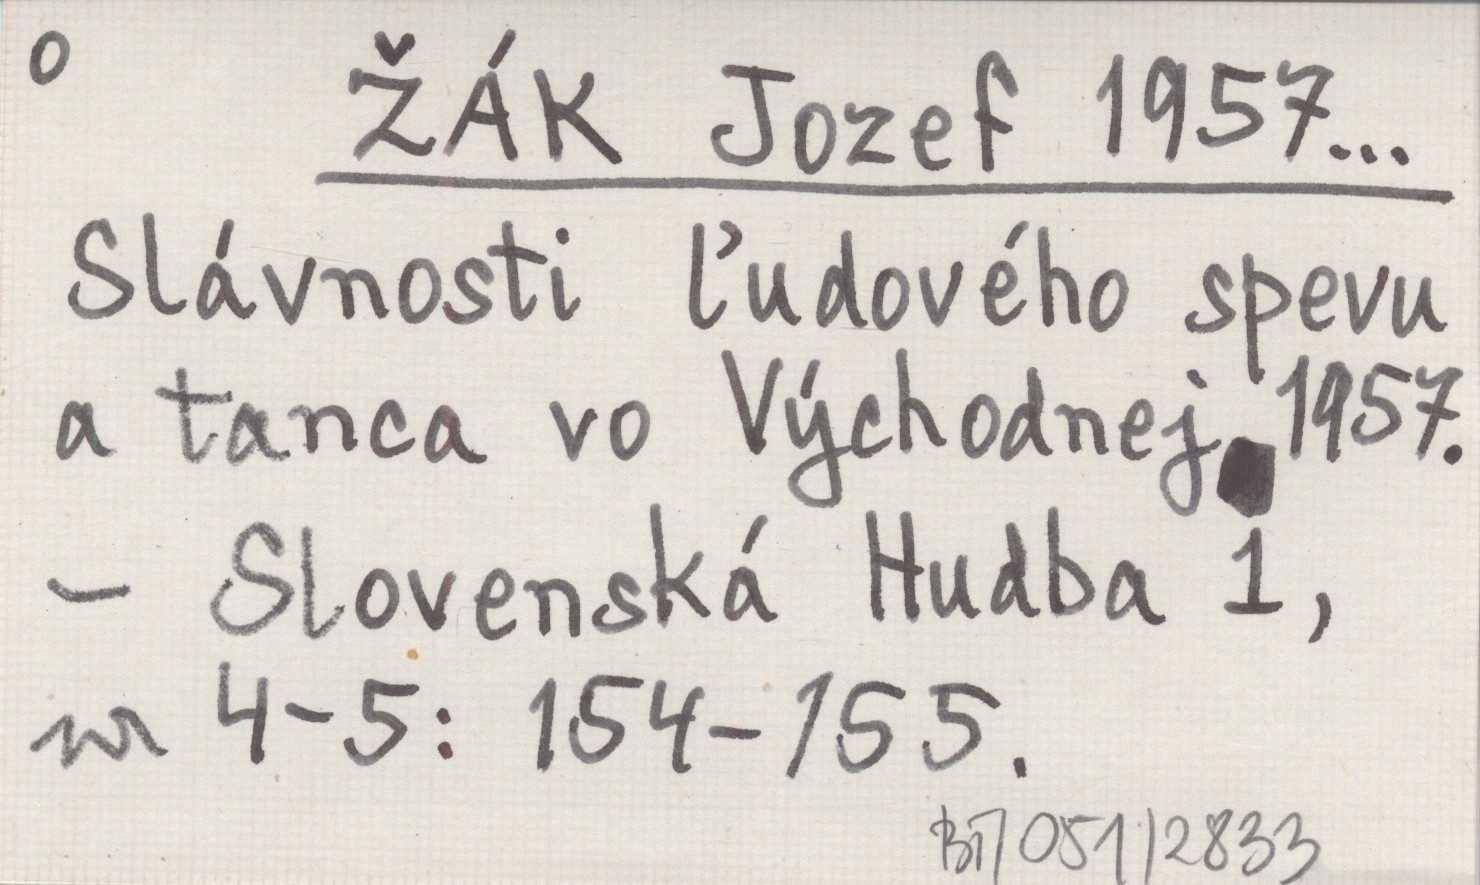 o
ŽÁK Jozef 1957...
Slávnosti ľudového spevu
a tanca vo Východnej 1957.
– Slovenská Hudba 1,
nr 4–5: 154–155.
BT/051/2833